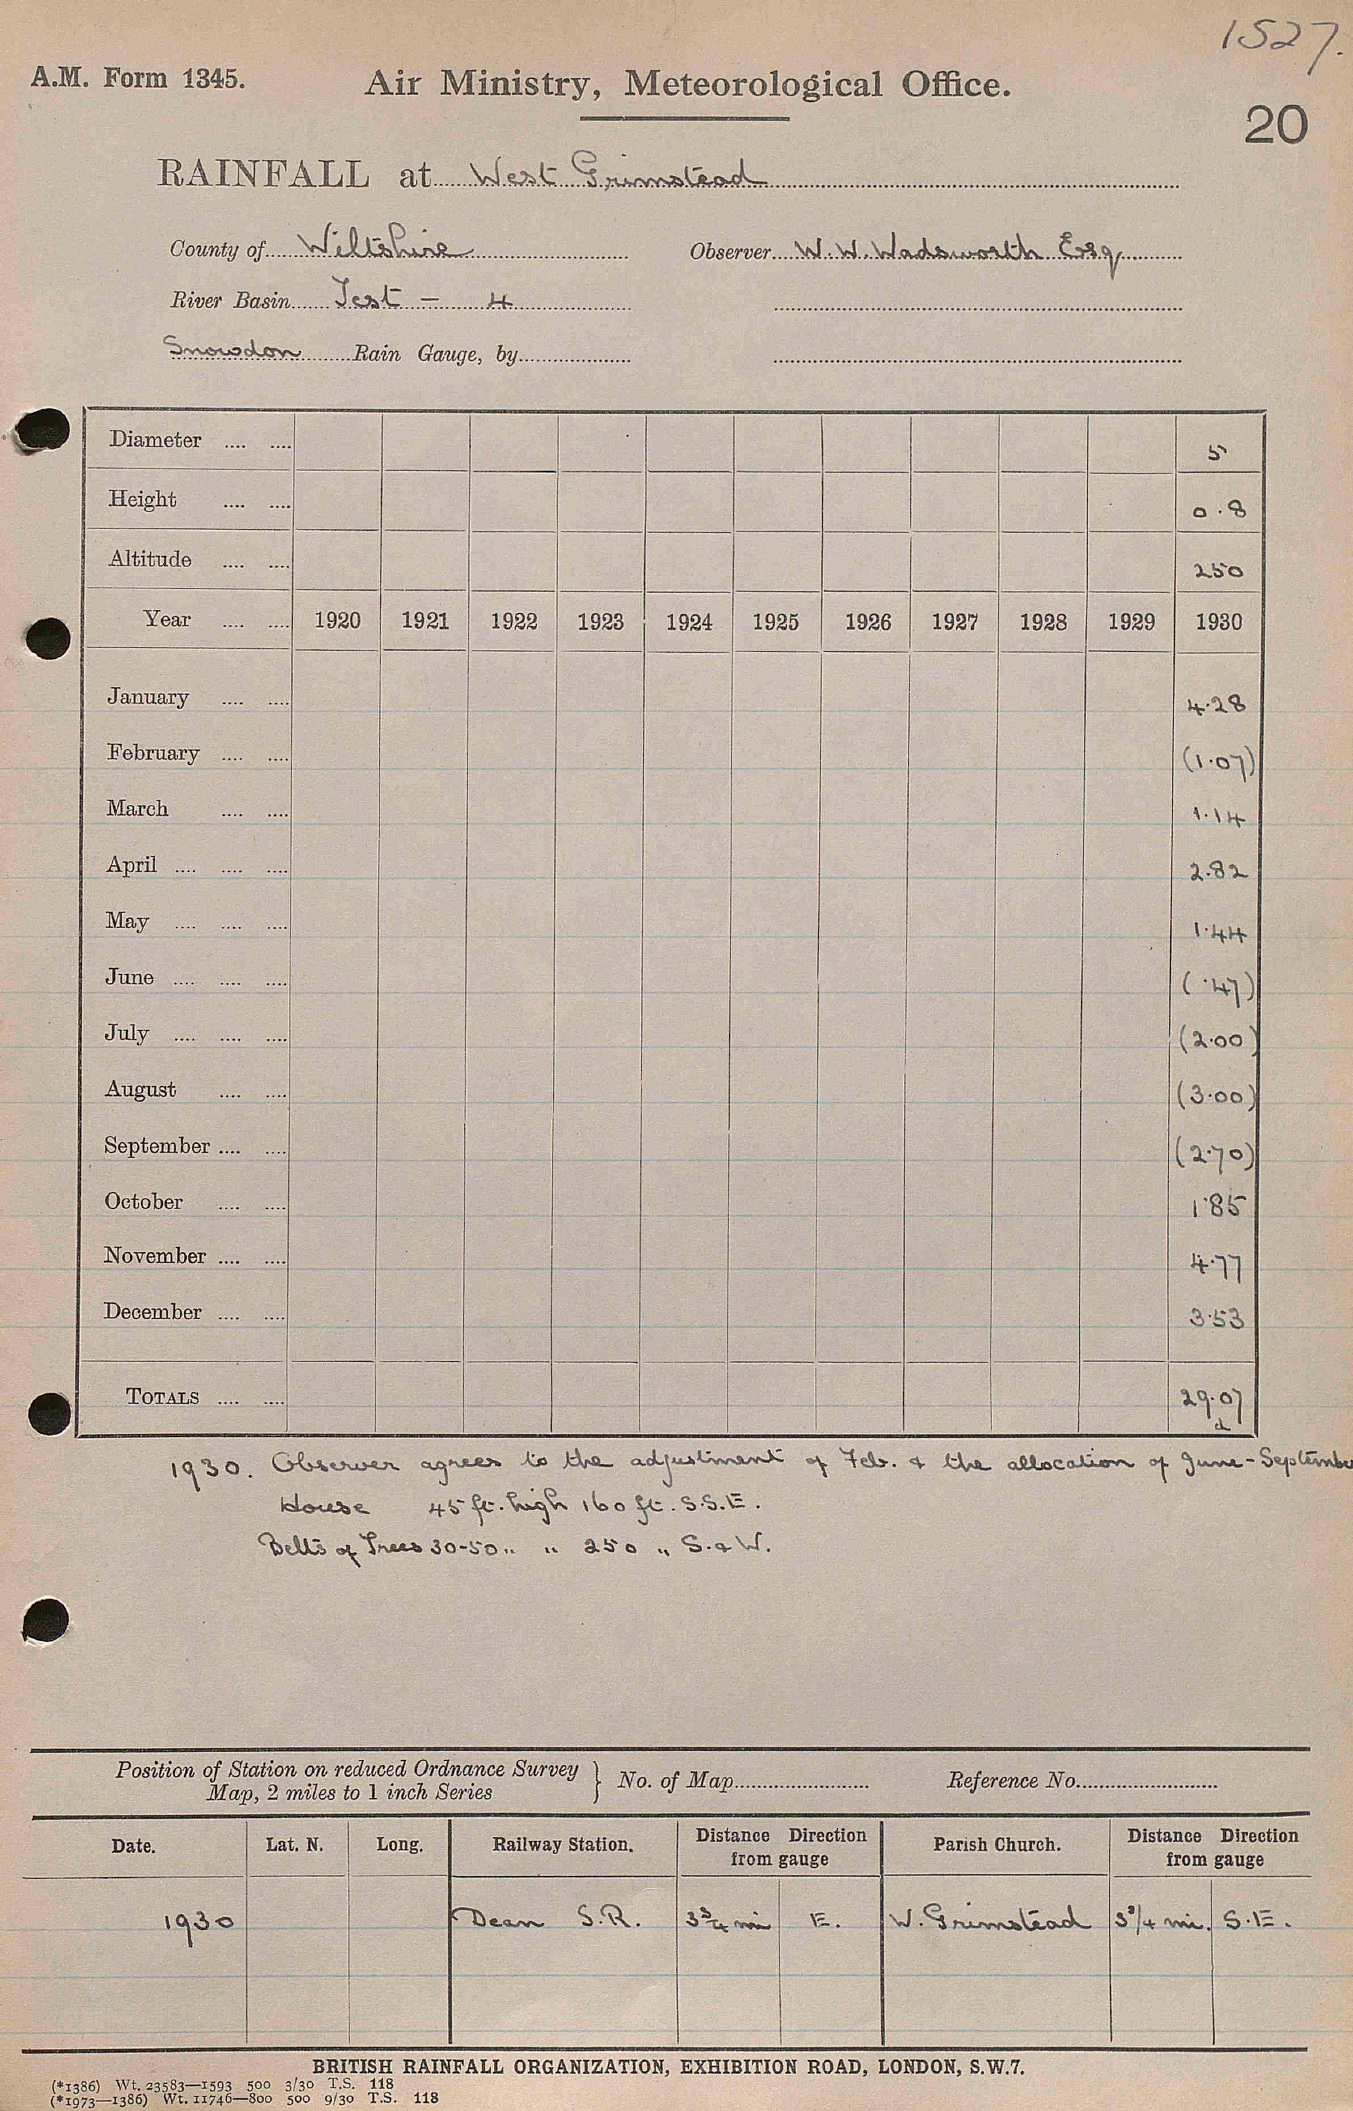 1527.
A.M. Form 1345.
Air Ministry, Meteorological Office.
20
RAINFALL at West Grimstead
County of Wiltshire Observer W. W. Wadsworth Esq
River Basin Test — 4
Snowdon Rain Gauge, by
Diameter 5
Height 0.8
Altitude 250
Year 1920 1921 1922 1923 1924 1925 1926 1927 1928 1929 1930
January 4.28
February (1.07)
March 1.14
April 2.82
May 1.44
June (.47)
July (2.00)
August (3.00)
September (2.70)
October 1.85
November 4.77
December 3.53
TOTALS 29.07
d
1930. Observer agrees to the adjustment of Feb. & the allocation of June - September
House 45 ft. high 160 ft. S.S.E.
Belts of Trees 30-50 " " 250 " S. & W.
Position of Station on reduced Ordnance Survey
Map, 2 miles to 1 inch Series } No. of Map Reference No.
Date. Lat. N. Long. Railway Station. Distance Direction from gauge Parish Church. Distance Direction from gauge
1930 Dean S.R. 3 3/4 mi E. W. Grimstead 3/4 mi. S.E.
BRITISH RAINFALL ORGANIZATION, EXHIBITION ROAD, LONDON, S.W.7.
(*1386) Wt. 23583—1593 500 3/30 T.S. 118
(*1973—1386) Wt. 11746—800 500 9/30 T.S. 118